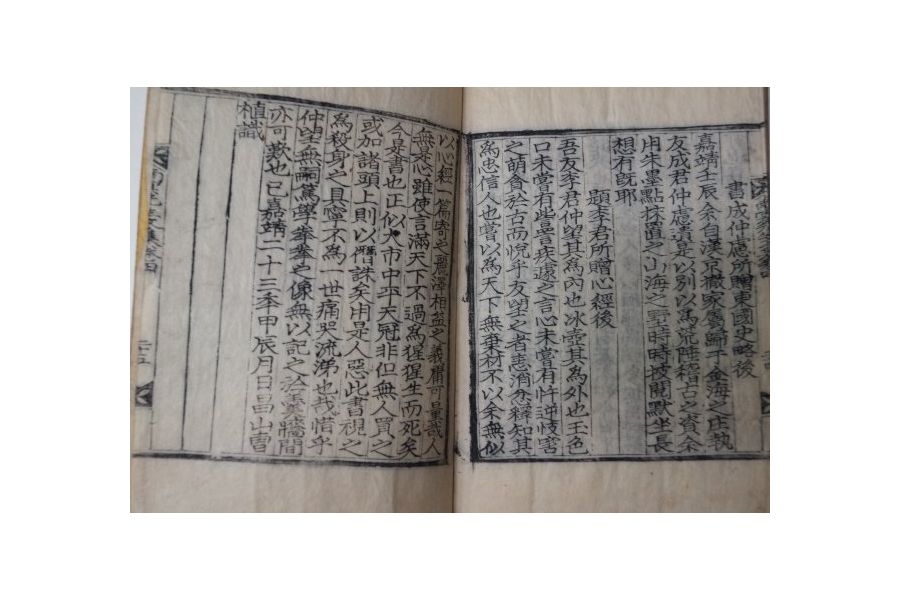 書成仲慮所贈東國史略後
嘉靖壬辰余自漢京撤家屬歸于金海之庄執
友成君仲慮遺是以別以爲荒陸稽古之資余
用朱墨點抹置之山海之野時時披閱默坐長
想有旣耶
題李君所贈心經後
吾友李君仲望其爲內也冰壺其爲外也玉色
口未嘗有些疾遽之言心未嘗有忤逆忮害
之萌貪於古而悅乎友望之者恚消忿釋知其
爲忠信人也嘗以爲天下無棄材不以余無似
以心經一篇寄之麗澤相益之義庸可量哉人
無死心雖使言滿天下不過爲猩猩生而死矣
今是書也正似大市中平天冠非但無人買之
或加諸頭上則以僭誅矣用是人惡此書視之
爲殺身之具寧不爲一世痛哭流涕也哉惜乎
仲望無嗣篤學拳拳之像無以記之於羹墻間
亦可歎也已嘉靖二十三季甲辰月日昌山曺
植識